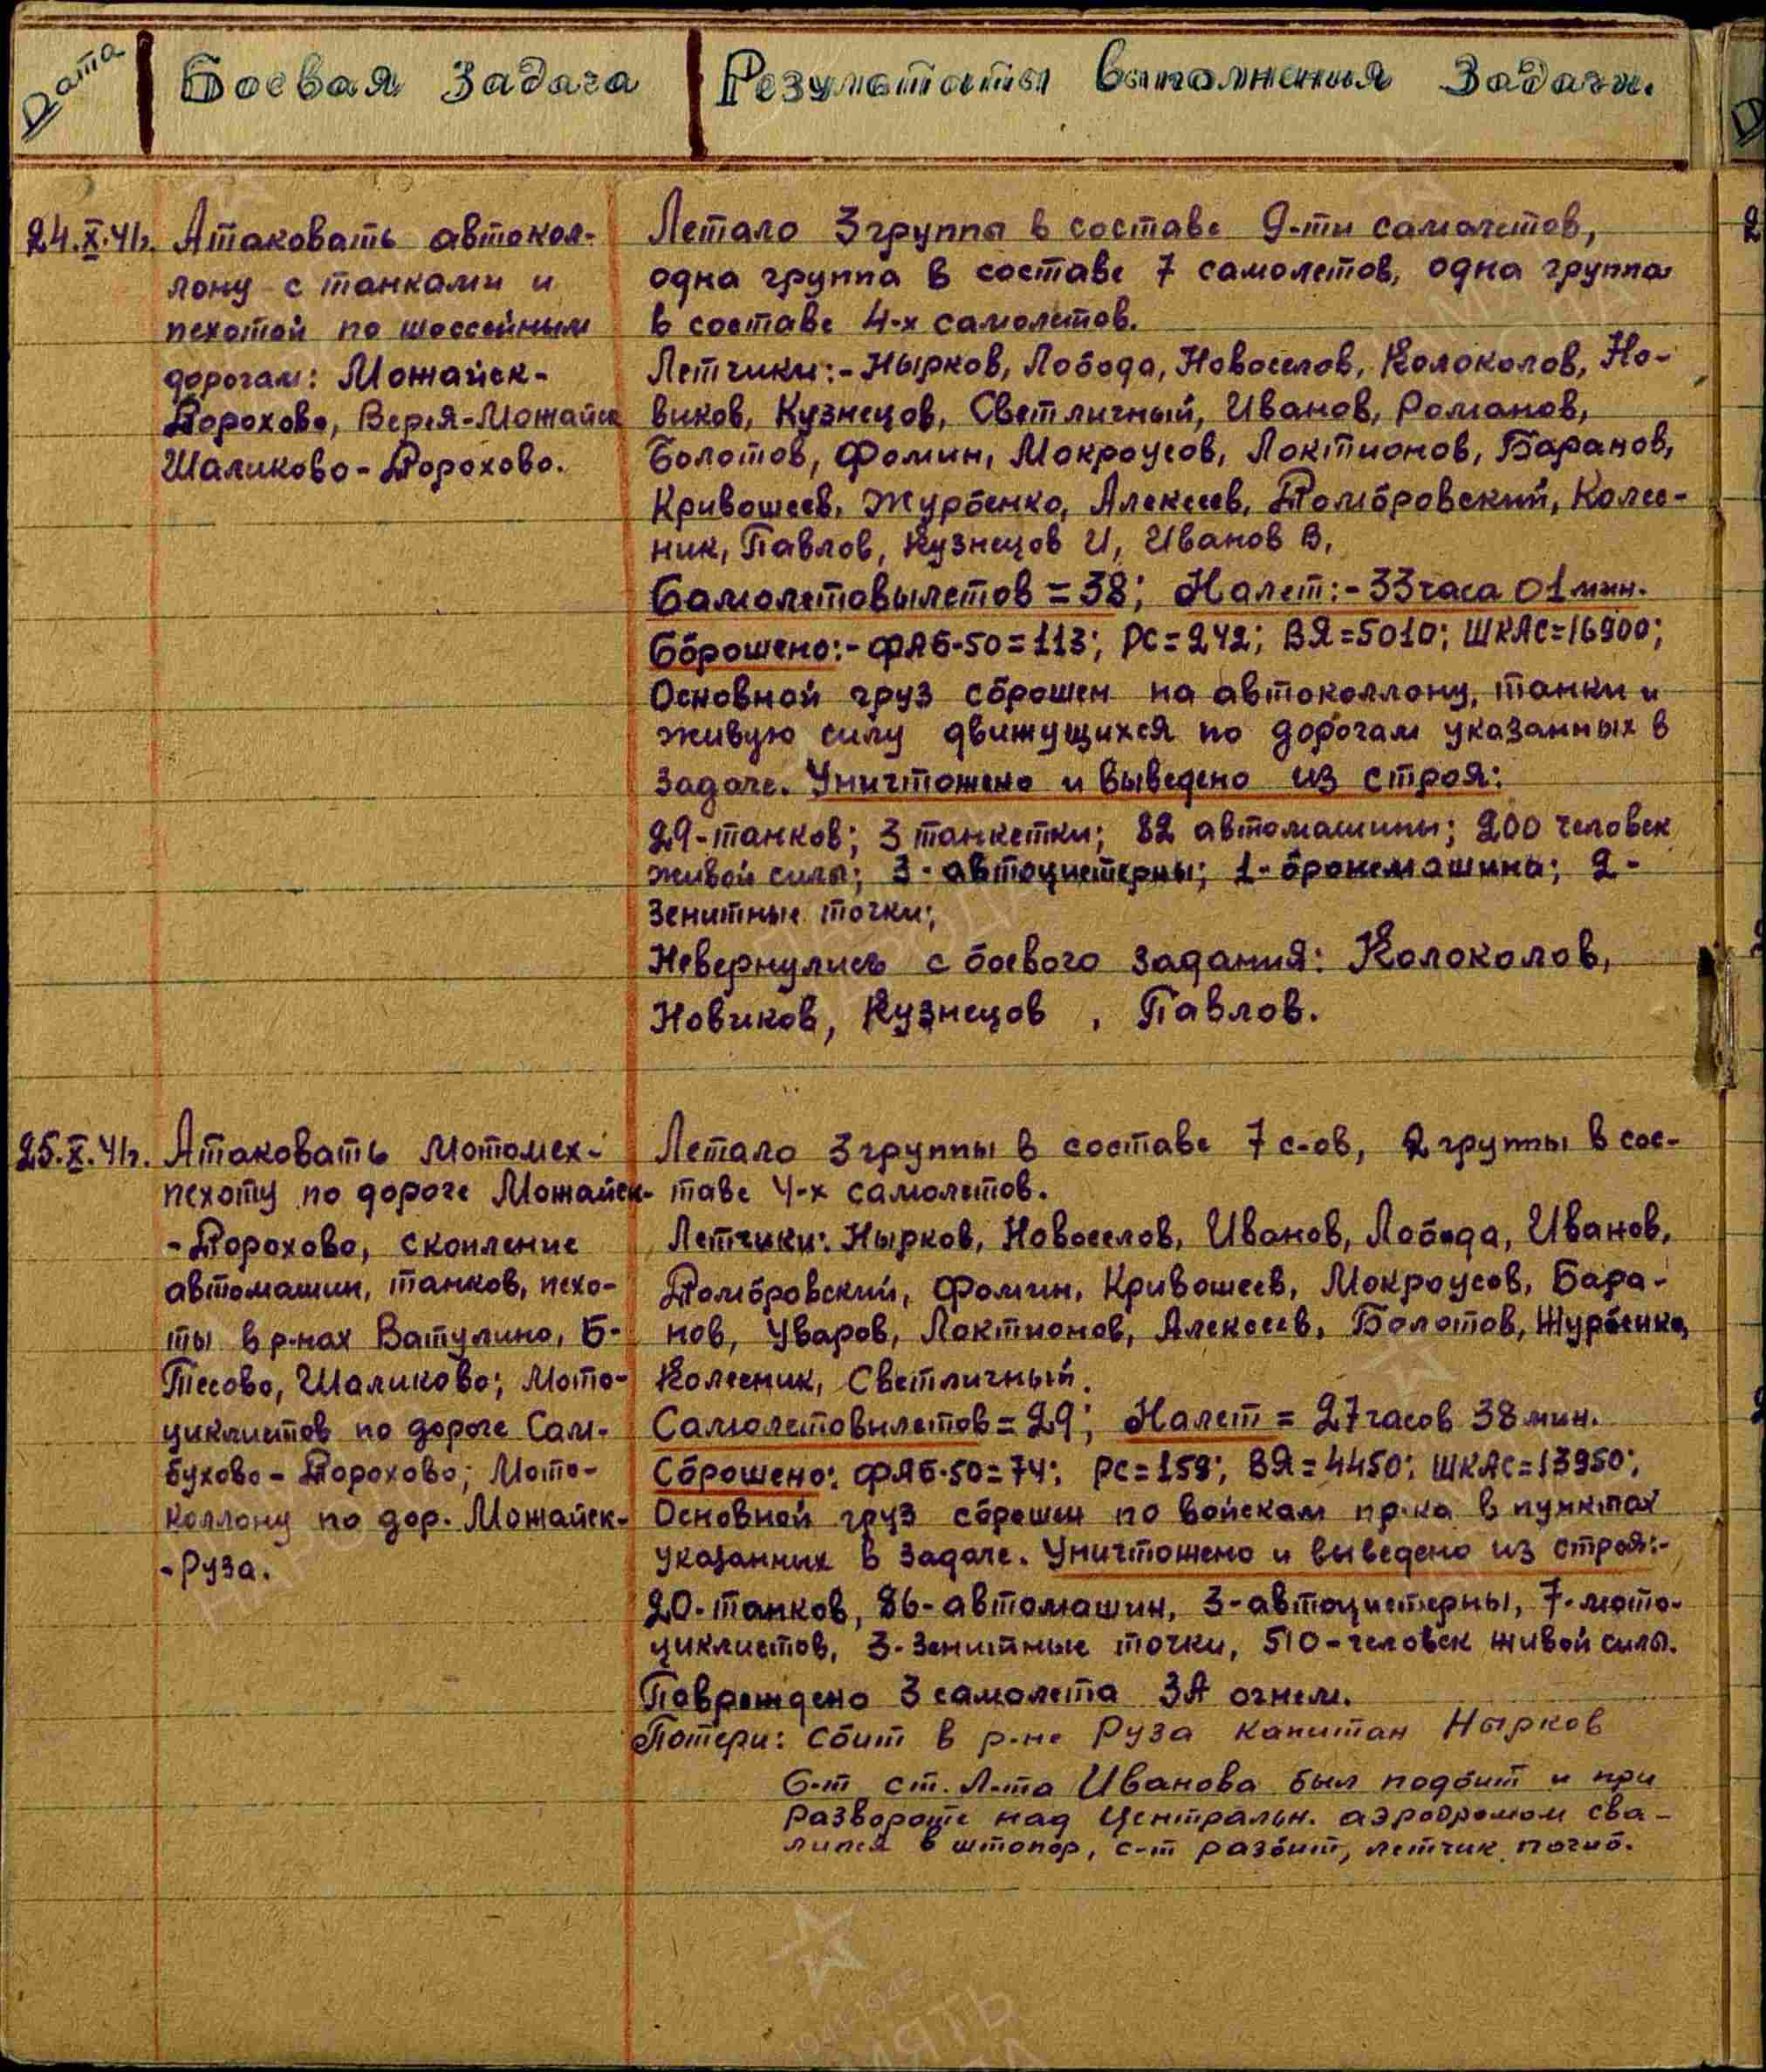 Дата
Боевая Задача
Результаты выполнения Задачи.
24.X.41г.
Атаковать автокол-
лону с танками и
пехотой по шоссейным
дорогам: Можайск-
Дорохово, Верея-Можайск
Шаликово-Дорохово.
Летало 3 группы в составе 9-ти самолетов,
одна группа в составе 7 самолетов, одна группа
в составе 4-х самолетов.
Летчики:- Нырков, Лобода, Новоселов, Колоколов, Но-
виков, Кузнецов, Светличный, Иванов, Романов,
Болотов, Фомин, Мокроусов, Локтионов, Баранов,
Кривошеев, Журбенко, Алексеев, Домбровский, Колес-
ник, Павлов, Кузнецов И, Иванов В,
Самолетовылетов = 38; Налет:- 33 часа 01 мин.
Сброшено:- ФАБ-50=113; РС=242; ВЯ=5010; ШКАС=16900;
Основной груз сброшен на автоколлону, танки и
живую силу движущихся по дорогам указанных в
задаче. Уничтожено и выведено из строя:
29-танков; 3 танкетки; 82 автомашины; 200 человек
живой силы; 3-автоцистерны; 1-бронемашина; 2-
зенитные точки;
Невернулись с боевого задания: Колоколов,
Новиков, Кузнецов , Павлов.
25.X.41г.
Атаковать Мотомех-
пехоту по дороге Можайск-
-Дорохово, скопление
автомашин, танков, пехо-
ты в р-нах Ватулино, Б-
Тесово, Шаликово; Мото-
циклистов по дороге Сам-
бухово-Дорохово; Мото-
коллону по дор. Можайск-
-Руза.
Летало 3 группы в составе 7 с-ов, 2 группы в сос-
таве 4-х самолетов.
Летчики: Нырков, Новоселов, Иванов, Лобода, Иванов,
Домбровский, Фомин, Кривошеев, Мокроусов, Бара-
нов, Уваров, Локтионов, Алексеев, Болотов, Журбенко,
Колесник, Светличный.
Самолетовылетов=29; Налет = 27 часов 38 мин.
Сброшено: ФАБ-50=74; РС=159; ВЯ=4450; ШКАС=13950;
Основной груз сброшен по войскам пр-ка в пунктах
указанных в задаче. Уничтожено и выведено из строя:-
20-танков, 86-автомашин, 3-автоцистерны, 7-мото-
циклистов, 3-зенитные точки, 510-человек живой силы.
Повреждено 3 самолета ЗА огнем.
Потери: Сбит в р-не Руза капитан Нырков
С-т ст. Л-та Иванова был подбит и при
развороте над Центральн. аэродромом сва-
лился в штопор, с-т разбит, летчик погиб.